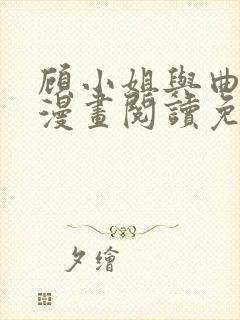 顧小姐與曲
漫畫閱讀免
夕繪